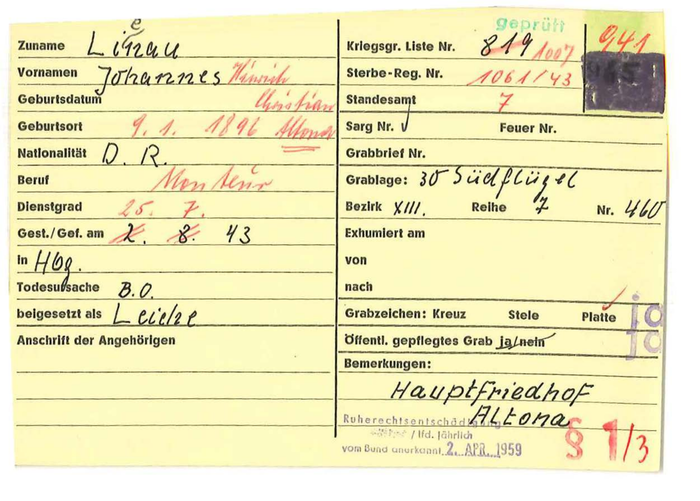 e
Zuname Linau
Vornamen Johannes Hinrich
Geburtsdatum Christian
Geburtsort 9. 1. 1896 Altona
Nationalität D. R.
Beruf Monteur
Dienstgrad 25. 7.
Gest./Gef. am 2. 8. 43
in Hbg.
Todesursache B.O.
beigesetzt als Leiche
Anschrift der Angehörigen
geprüft
Kriegsgr. Liste Nr. 819 1007 941
Sterbe-Reg. Nr. 1061/43
Standesamt 7
Sarg Nr. Feuer Nr.
Grabbrief Nr.
Grablage: 30 Südflügel
Bezirk XIII. Reihe 7 Nr. 460
Exhumiert am
von
nach
Grabzeichen: Kreuz Stele Platte ja
Öffentl. gepflegtes Grab ja/nein ja
Bemerkungen:
Hauptfriedhof
Altona
Ruherechtsentschädigung
/ lfd. jährlich
vom Bund anerkannt 2. APR. 1959
§ 1/3